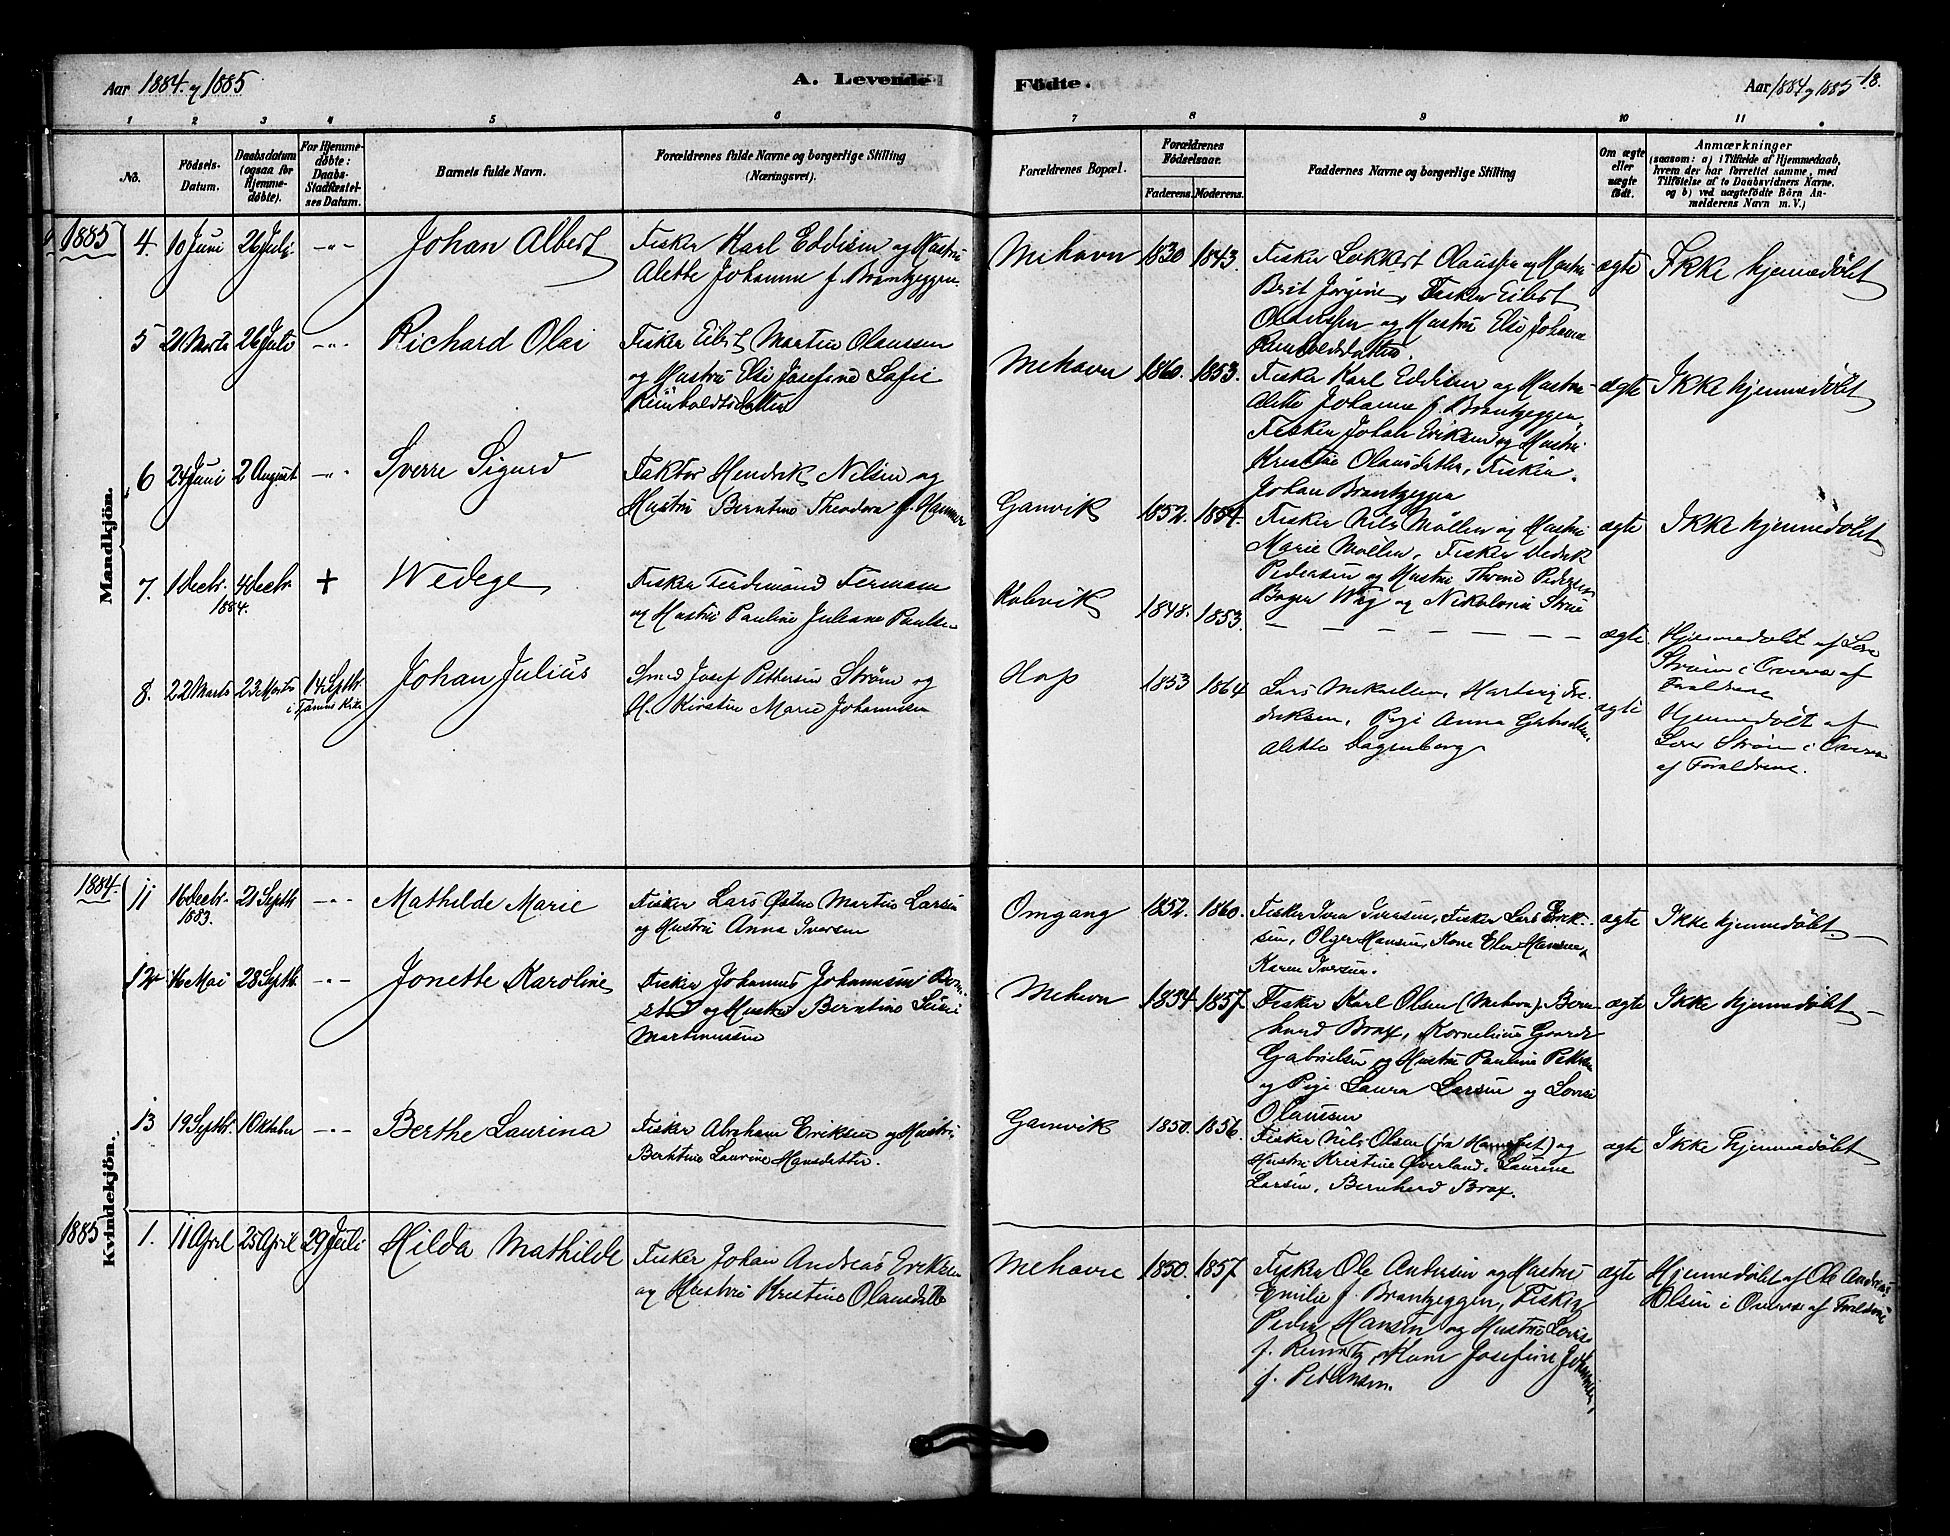 Aar 1884 og 1885
A. Levende
Födte.
Aar 1884 og 1885
18.
1 2 3 4 5 6 7 8 9 10 11
No.
Födsels-Datum.
Daabsdatum (ogsaa for Hjemmedöbte).
For Hjemmedöbte: Daabs-Stadfæstelses Datum.
Barnets fulde Navn.
Forældrenes fulde Navne og borgerlige Stilling (Næringsvei).
Forældrenes Bopæl.
Forældrenes Födselsaar.
Faderens. Moderens.
Faddernes Navne og borgerlig Stilling
Om ægte eller uægte födt.
Anmærkninger
(saasom: a) i Tilfælde af Hjemmedaab, hvem der har forrettet samme, med Tilföielse af to Daabsvidners Navne. og b) ved uægtefödte Börn Anmelderens Navn m. V.)
Mandkjön.
1885
4. 10 Juni 26 Juli -"- Johan Albert
Fisker Karl Eddisen og Hustru
Alette Johanne f. Brantzeggen
Mehavn 1830 1843.
Fisker Lokkert Olaussen og Hustru
Brit Jorgine, Fisker Eibert
Olaussen og Hustru Elsi Johanna
Reinholdsdatter.
ægte Ikke hjemmedöbt
5 21 Marts 26 Juli -"- Richard Olai
Fisker Eibert Martin Olaussen
og Hustru Elsi Josefine Sofie
Reinholdtsdatter
Mehavn 1860. 1853.
Fisker Karl Eddisen og Hustru
Alette Johanne f. Brantzeggen,
Fisker Johan Eriksen og Hustru
Kristine Olausdatter, Fisker
Johan Brantzeggen
ægte Ikke hjemmedöbt
6 24 Juni 2 August -"- Sverre Sigurd
Faktor Hendrik Nilsen og
Hustru Berntine Theodora f. Hammer
Gamvik 1852. 1854.
Fisker Nils Møller og Hustru
Marie Møller, Fisker
Pedersen og Hustru Pedersen
og Nikoline
ægte Ikke hjemmedöbt
7. 1 Decbr. 4 Decbr. 1884. + Wedege
Fisker Ferdinand Fermann
og Hustru Pauline Juliane Paulsen
Kolvik 1848. 1853.
— — — — — — —
ægte. Hjemmedøbt af
Strøm i Overvær af
Forældrene
8. 22 Marts 23 Marts 14 Septbr. Johan Julius
Smed Josef Pettersen Strøm og
H. Kirstin Marie Johannesen
Hop 1853 1864
Lars Mikaelsen, Hartvig Fredriksen,
Pige Anna
Alette
ægte Hjemmedøbt af
Strøm i Overvær
af Forældrene.
Kvindekjön.
1884.
11 16 Decbr. 1883. 21 Septbr. -"- Mathilde Marie
Fisker Lars Østen Martin Larsen
og Hustru Anna Iversen
Omgang 1852. 1860.
Fisker Iver Iversen, Fisker Lars Eriksen,
Olger Hansen, Kone Elen Hansen,
Karen Iversen.
ægte Ikke hjemmedöbt —
12 16 Mai 28 Septbr. -"- Jonette Karoline
Fisker Johannes Johannesen
og Hustru Berntine
Martinussen
Mehavn 1854. 1857.
Fisker Karl Olsen (Mehavn), Bernhard
Brox, Kornelius Gaarder
Gabrielsen og Hustru Pauline Pettersen
og Pige Laura Larsen og Lovise
Olaussen
ægte Ikke hjemmedöbt —
13 19 Septbr. 1 Oktober -"- Berthe Laurina
Fisker Abraham Eriksen og Hustru
Berntine Laurine Hansdatter.
Gamvik 1850. 1856.
Fisker Nils Olsen (fra ) og
Hustru Kristine Overland, Laurine
Larsen, Bernhard Brox.
ægte Ikke hjemmedöbt
1885
1. 11 April 25 April 29 Juli Hilda Mathilde
Fisker Johan Andreas Eriksen
og Hustru Kristine Olausdatter
Mehavn 1850. 1857
Fisker Ole Andersen og Hustru
Emilie f. Brantzeggen, Fisker
Peder Hansen og Hustru Lovise
f. , Kone Josefine Johannesen,
f. Petersen.
ægte Hjemmedøbt af Ole Andreas
Olsen i Overvær af Forældrene